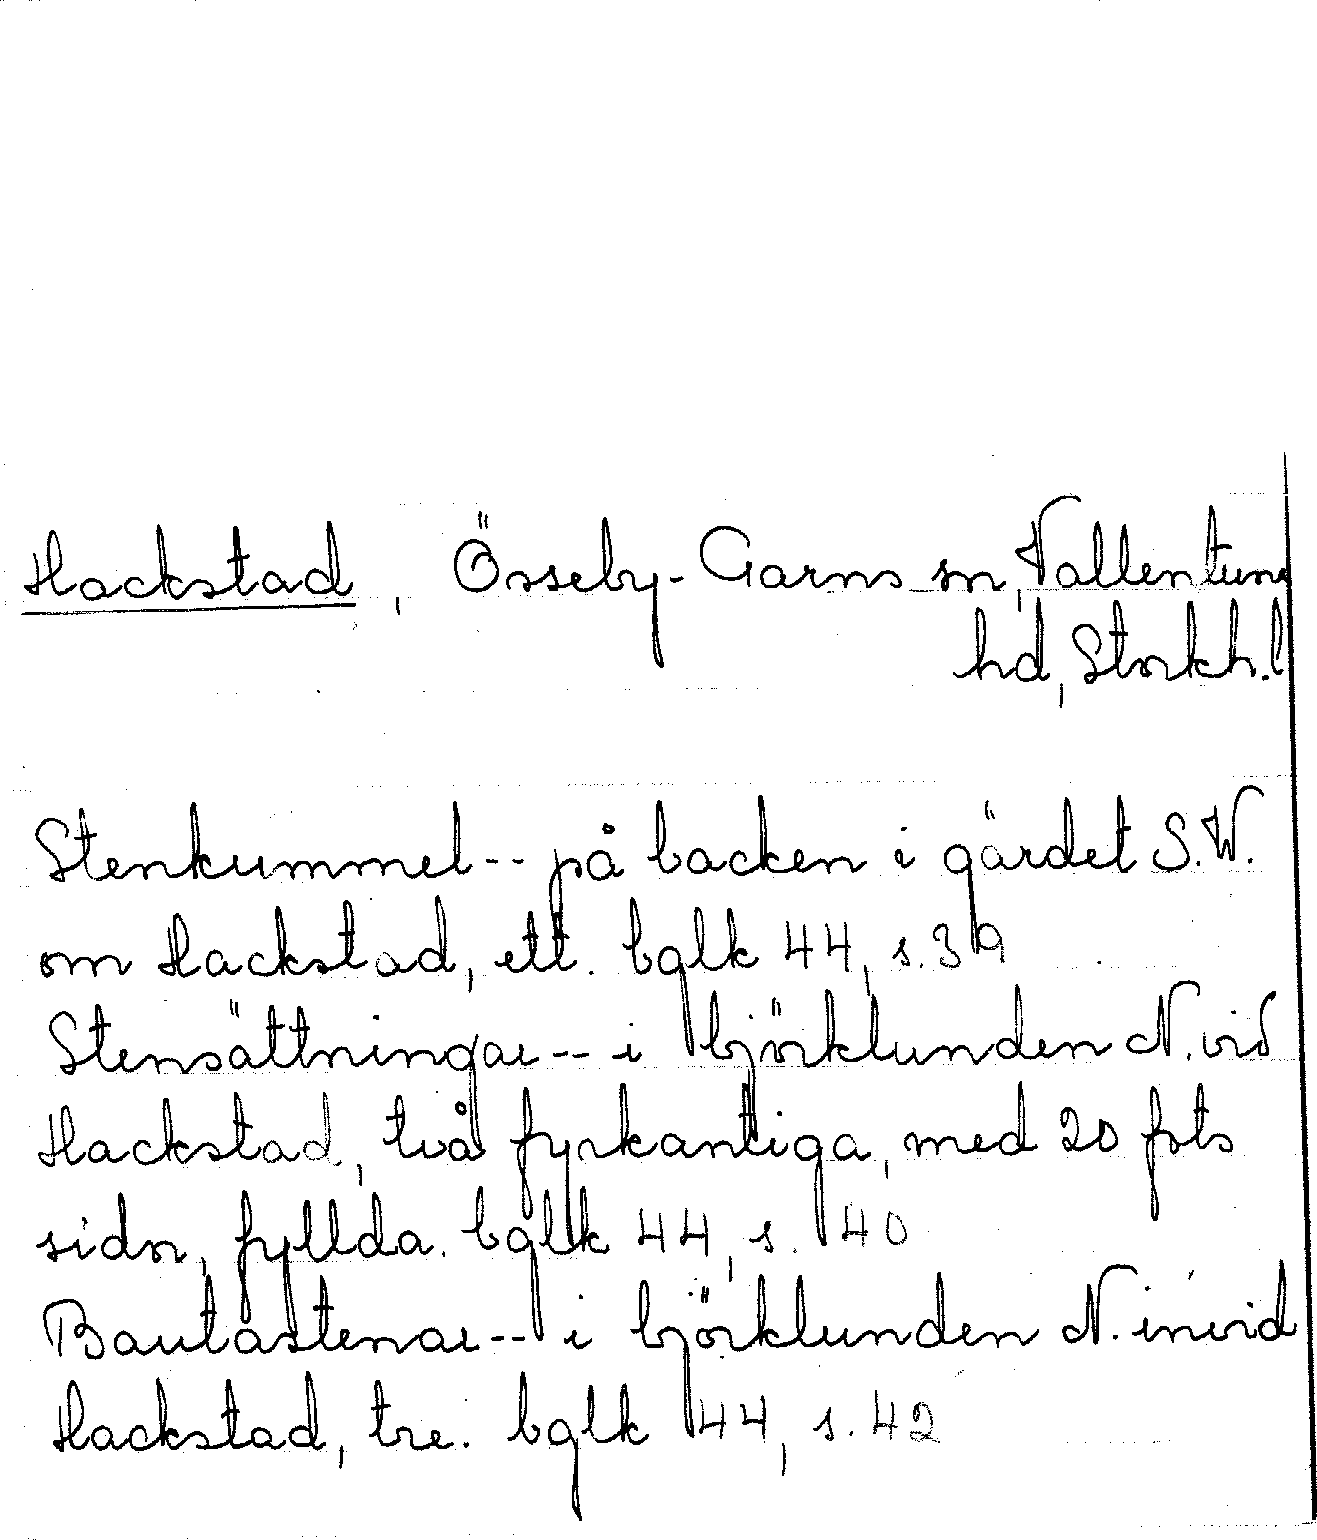 Hackstad, Össeby-Garns sn, Vallentuna
hd, Stockh. l
Stenkummel -- på backen i gärdet S.W.
om Hackstad, ett. bglk 44, s. 39
Stensättningar -- i björklunden N. vid
Hackstad, två fyrkantiga, med 20 fots
sidor, fyllda. bglk 44, s. 40
Bautastenar -- i björklunden N. invid
Hackstad, tre. bglk 44, s. 42